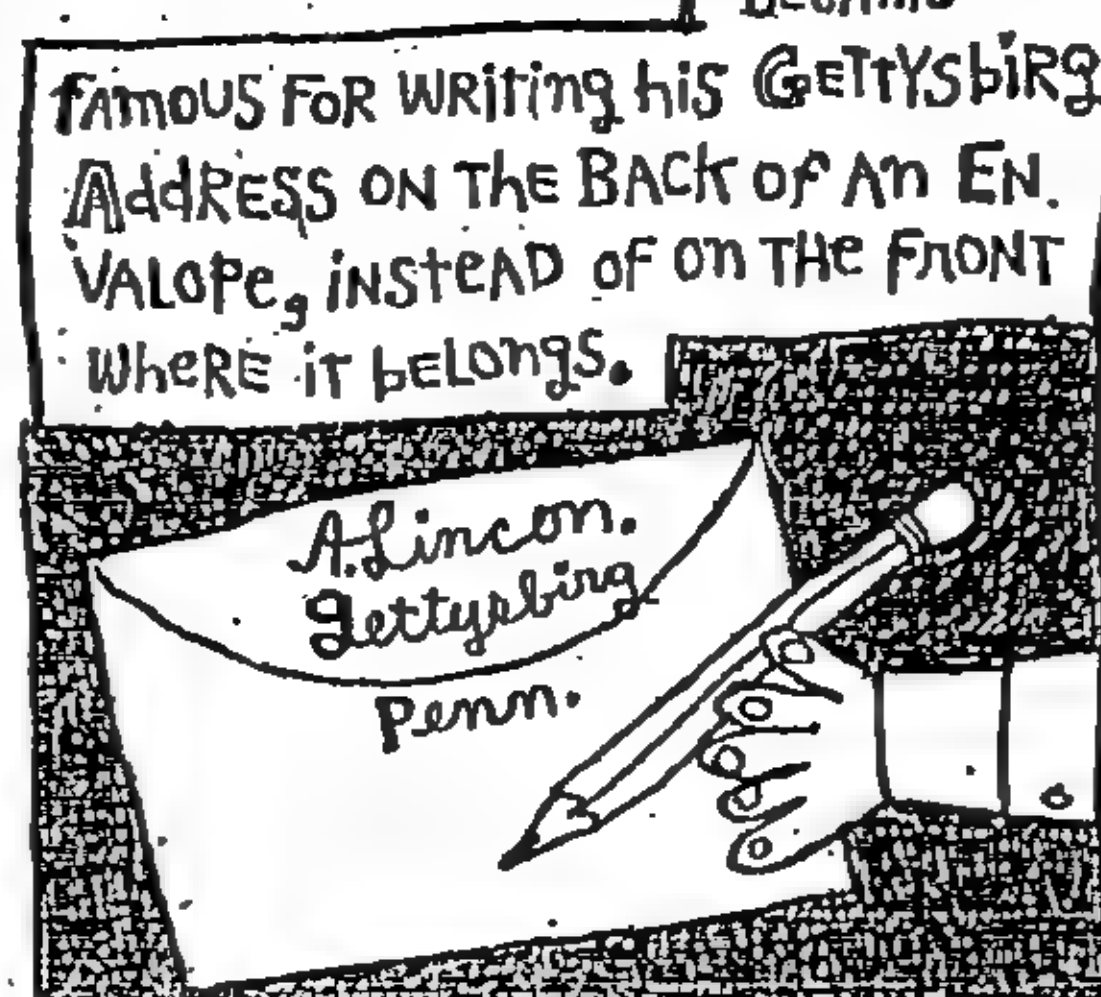 FAMOUS FOR WRiting his GETTYSbiRg
AddRESS ON ThE BACk of An EN.
VALOPe, iNSteAD of on THe FRONT
WheRE iT bELongS.
A. Lincon.
Gettysbirg
Penn.